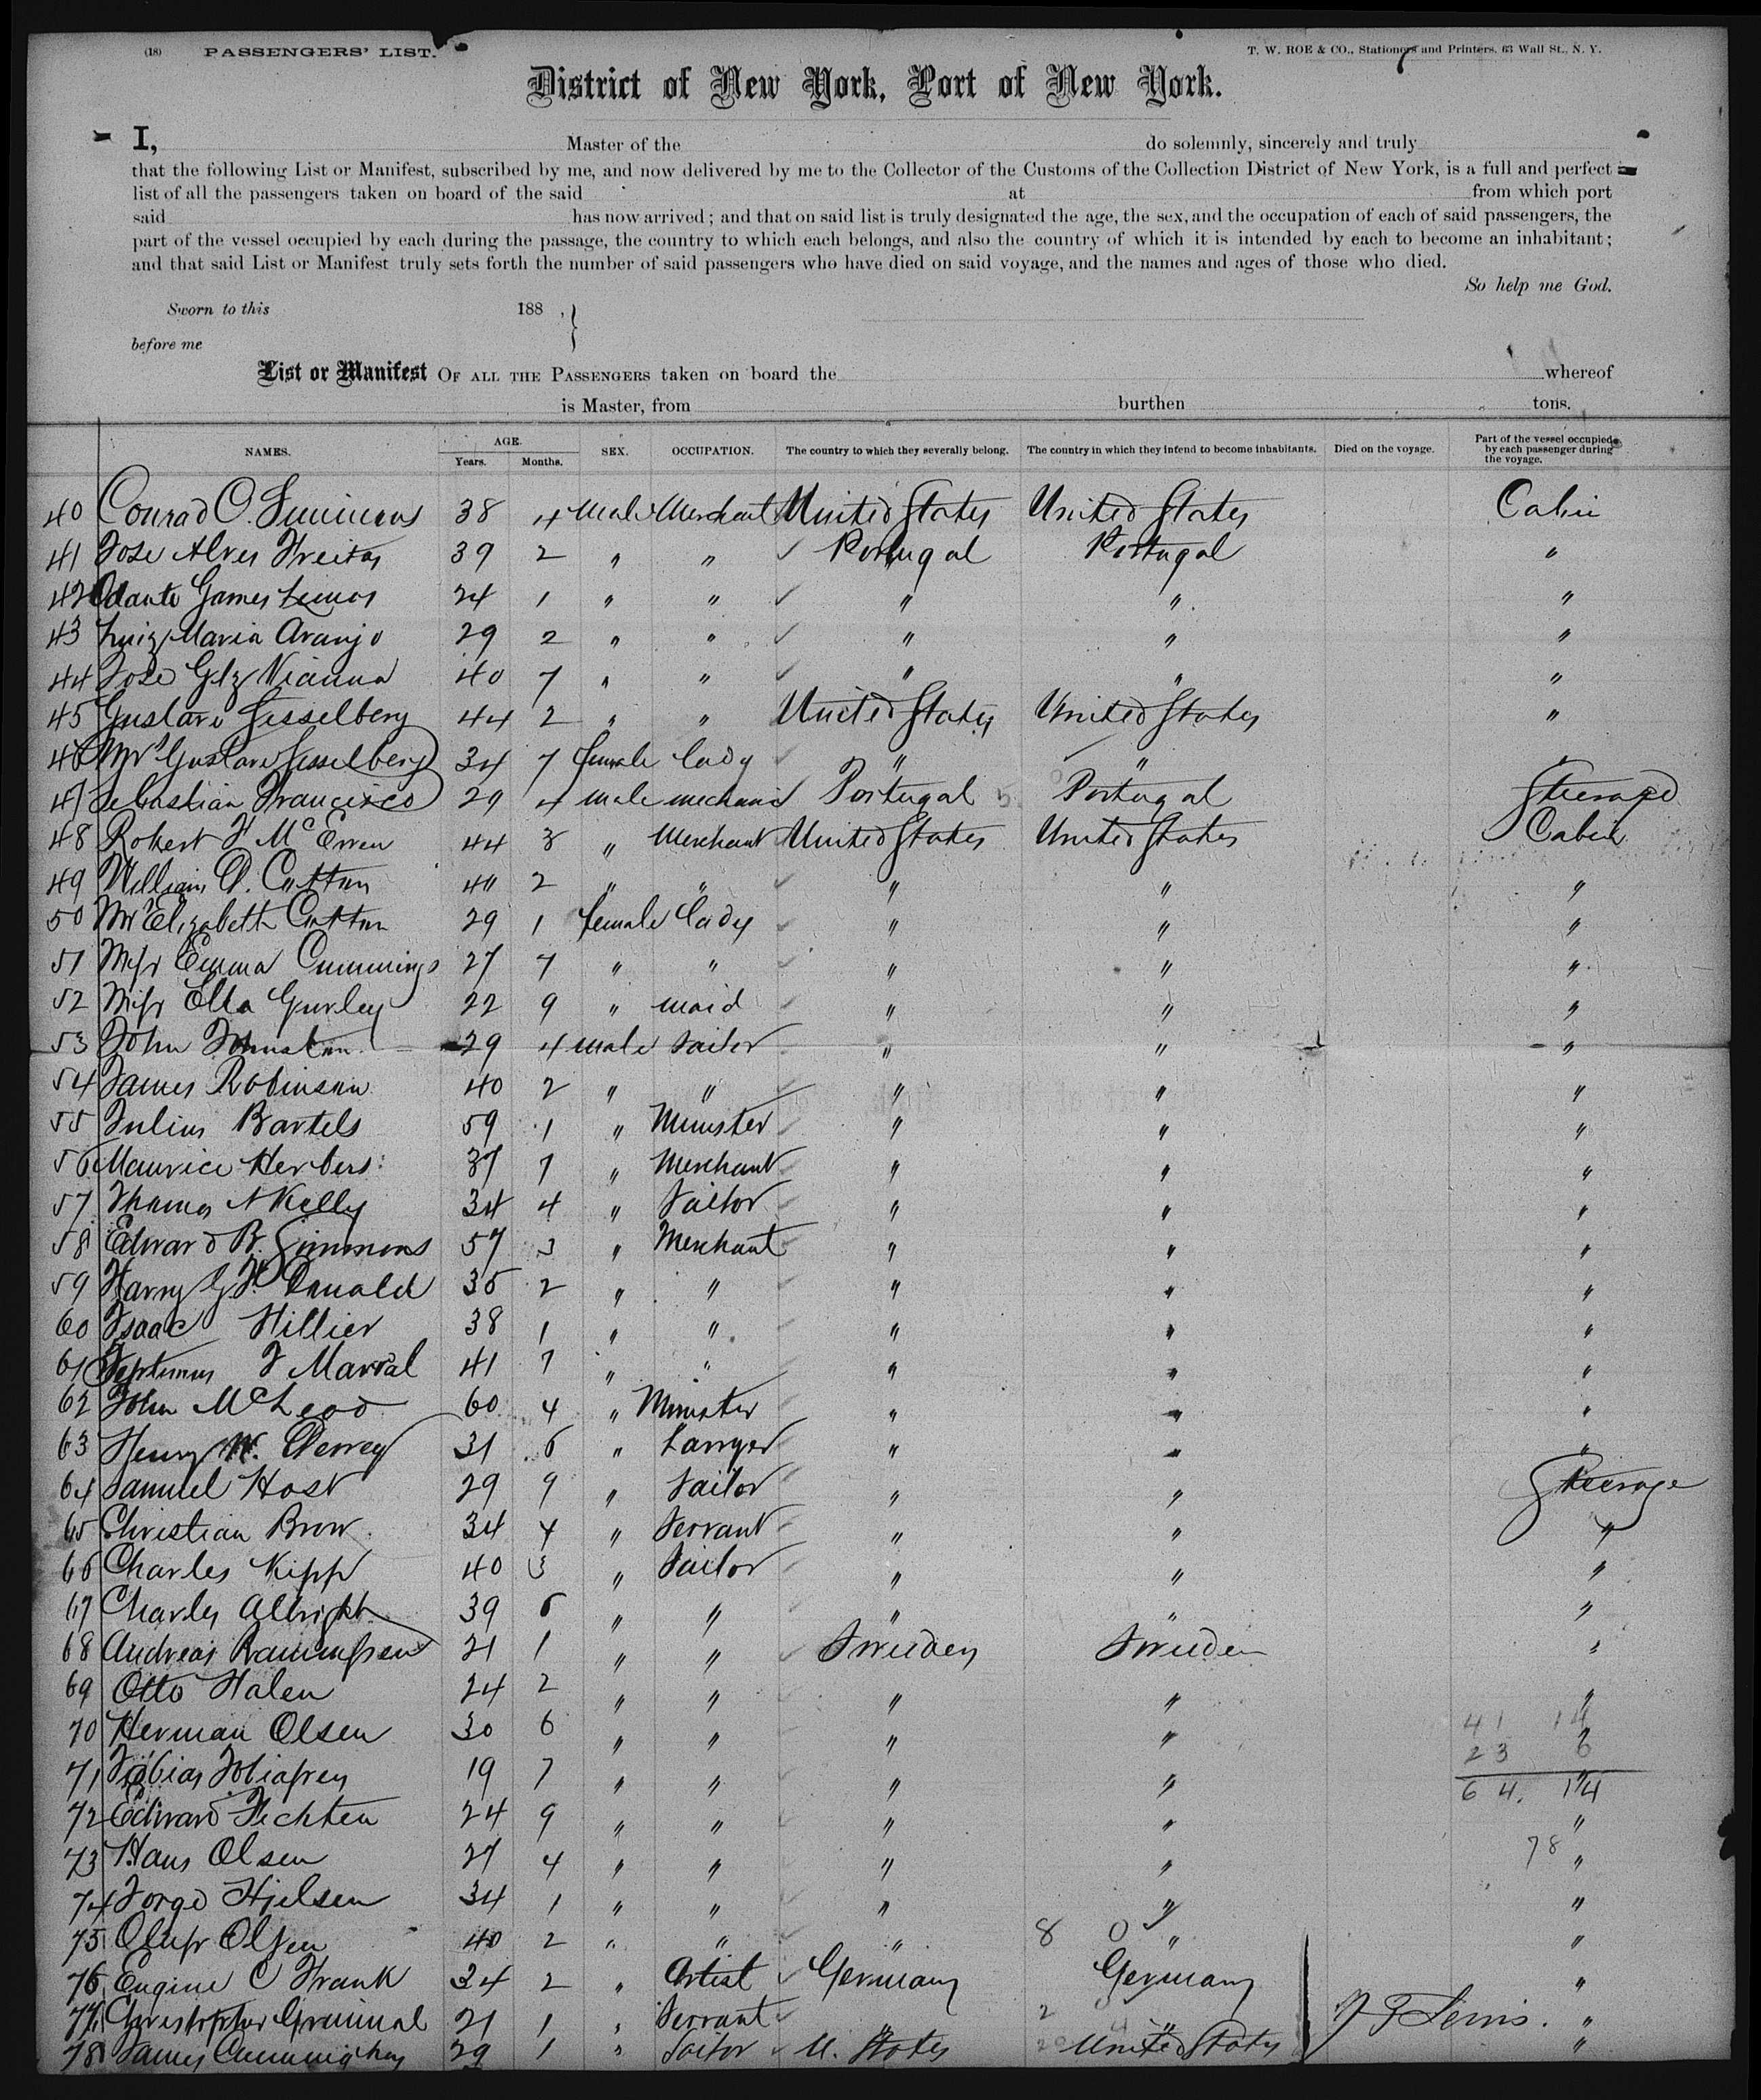 (18) PASSENGERS' LIST.
T. W. ROE & CO., Stationers and Printers, 63 Wall St., N. Y.
District of New York, Port of New York.
I, Master of the do solemnly, sincerely and truly
that the following List or Manifest, subscribed by me, and now delivered by me to the Collector of the Customs of the Collection District of New York, is a full and perfect
list of all the passengers taken on board of the said at from which port
said has now arrived; and that on said list is truly designated the age, the sex, and the occupation of each of said passengers, the
part of the vessel occupied by each during the passage, the country to which each belongs, and also the country of which it is intended by each to become an inhabitant;
and that said List or Manifest truly sets forth the number of said passengers who have died on said voyage, and the names and ages of those who died.
So help me God.
Sworn to this 188 , }
before me
List or Manifest OF ALL THE PASSENGERS taken on board the whereof
is Master, from burthen tons.
NAMES. AGE. Years. Months. SEX. OCCUPATION. The country to which they severally belong. The country in which they intend to become inhabitants. Died on the voyage. Part of the vessel occupied by each passenger during the voyage.
40 Conrad O. Simmons 38 4 Male Merchant United States United States Cabin
41 Jose Alves Freitas 39 2 " " Portugal Portugal "
42 Gomes Lemos 24 1 " " " " "
43 Luiz Maria Araujo 29 2 " " " " "
44 Jose Glz Vianna 40 7 " " " " "
45 Gustave 44 2 " " United States United States "
46 Mrs Gustave 34 7 female lady " " "
47 Sebastian Francisco 29 4 male mechanic Portugal Portugal Steerage
48 Robert F McEwen 44 3 " Merchant United States United States Cabin
49 William D. Cotton 40 2 " " " " "
50 Mrs Elizabeth Cotton 29 1 female lady " " "
51 Miss Emma Cummings 27 7 " " " " "
52 Miss Ella Gurley 22 9 " maid " " "
53 John Johnston 29 4 male Sailor " " "
54 James Robinson 40 2 " " " " "
55 Julius Bartels 59 1 " Minister " " "
56 Maurice Herbers 37 7 " Merchant " " "
57 Thomas A Kelly 34 4 " Sailor " " "
58 Edward B. Simmons 57 3 " Merchant " " "
59 Harry G F. Donald 35 2 " " " " "
60 Isaac Hillier 38 1 " " " " "
61 Septimus F Marval 41 7 " " " " "
62 John McLeod 60 4 " Minister " " "
63 Henry W. 31 6 " Lawyer " " "
64 Samuel Host 29 9 " Sailor " " Steerage
65 Christian Brow 34 4 " Servant " " "
66 Charles Kipp 40 3 " Sailor " " "
67 Charles Albright 39 6 " " " " "
68 Andreas 21 1 " " Sweden Sweden "
69 Otto Halen 24 2 " " " " "
70 Herman Olsen 30 6 " " " " 41 14 "
71 Tobias 19 7 " " " " 23 6
64. 14
72 Edward Fechten 24 9 " " " " "
73 Hans Olsen 27 4 " " " " 78 "
74 Jorge Hjelsen 34 1 " " " " "
75 Olsen 40 2 " " " 8 0 " "
76 Eugine C Frank 34 2 " Artist Germany Germany "
77 Christopher Grimmal 21 1 " Servant " " "
78 James 29 1 " Sailor U. States United States "